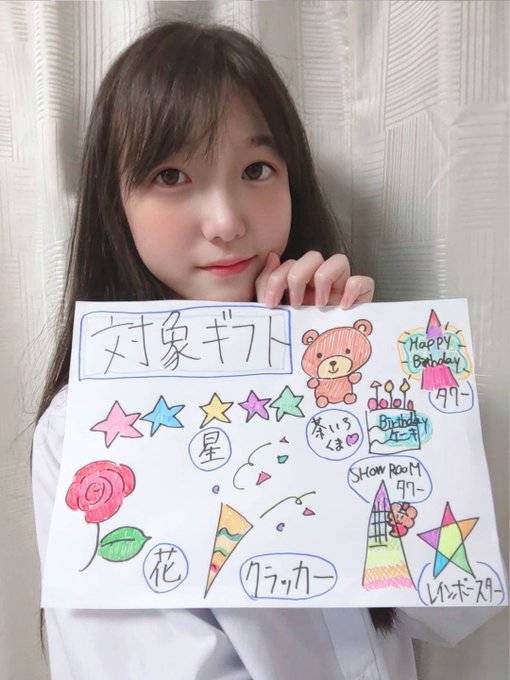 対象ギフト
Happy
Birthday
タワー
茶いろ
くま
Birthday
ケーキ
星
SHOWROOM
タワー
花
クラッカー
レインボースター